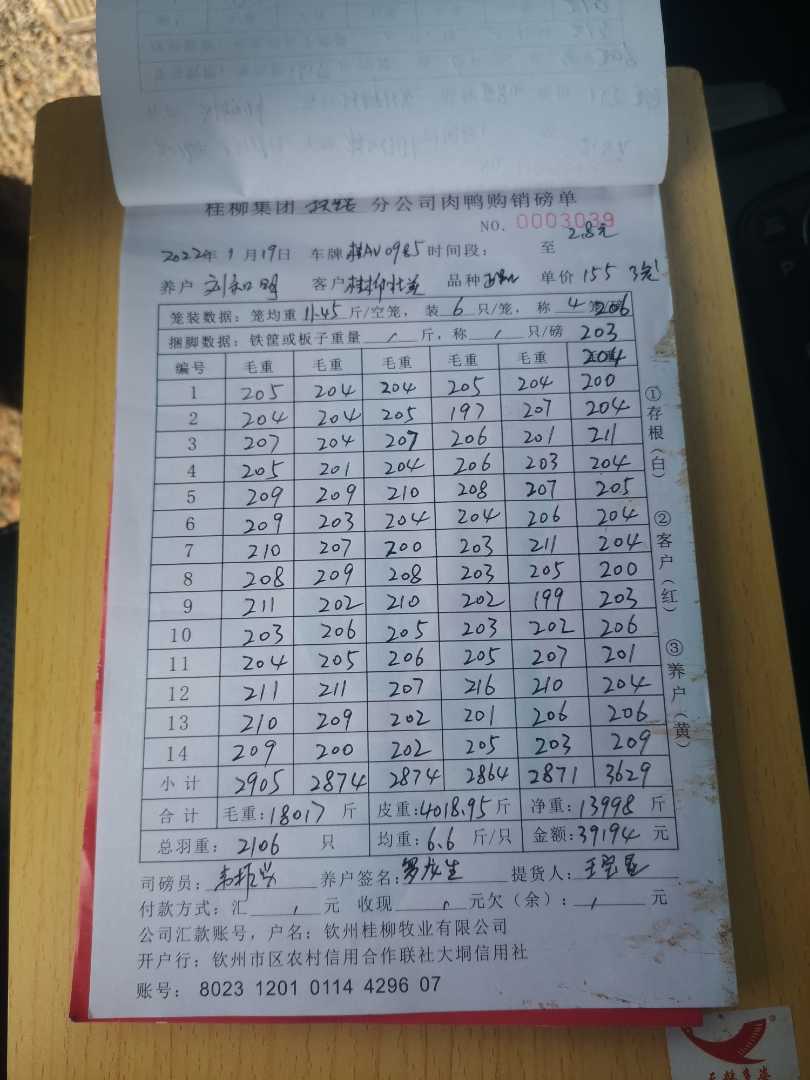 桂柳集团 分公司肉鸭购销磅单
NO. 0003039
2022年1月19日 车牌 桂AV0985 时间段: 至 2.8元
养户 刘和明 客户 桂柳 品种 单价 155 3元
笼装数据: 笼均重 11.45 斤/空笼, 装 6 只/笼, 称 4 笼/磅 206
捆脚数据: 铁筐或板子重量 / 斤, 称 / 只/磅 203
编号 毛重 毛重 毛重 毛重 毛重 204
1 205 204 204 205 204 200
2 204 204 205 197 207 204
3 207 204 207 206 201 211
4 205 201 204 206 203 204
5 209 209 210 208 207 205
6 209 203 204 204 206 204
7 210 207 200 203 211 204
8 208 209 208 203 205 200
9 211 202 210 202 199 203
10 203 206 205 203 202 206
11 204 205 206 205 207 201
12 211 211 207 216 210 204
13 210 209 202 201 206 206
14 209 200 202 205 203 209
小计 2905 2874 2874 2864 2871 3629
合计 毛重:18017 斤 皮重:4018.95斤 净重:13998 斤
总羽重: 2106 只 均重: 6.6 斤/只 金额:39194 元
司磅员: 养户签名: 罗龙生 提货人:
付款方式: 汇 / 元 收现 / 元欠(余): / 元
公司汇款账号, 户名: 钦州桂柳牧业有限公司
开户行: 钦州市区农村信用合作联社大垌信用社
账号: 8023 1201 0114 4296 07
①存根(白)
②客户(红)
③养户(黄)